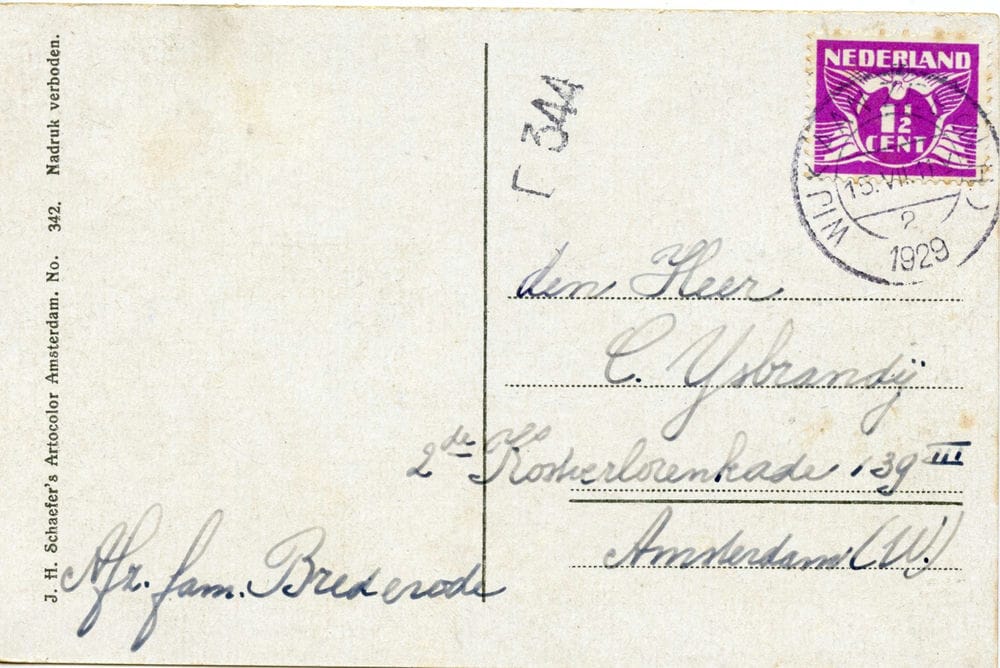 J. H. Schaefer's Artocolor Amsterdam. No. 342. Nadruk verboden.
Γ 344
NEDERLAND
1½
CENT
WIJK AAN ZEE
15.VII.
2
1929
den Heer
C. Ysbrandij
2de Kostverlorenkade 139 III
Amsterdam (W.)
Afz. fam. Brederode